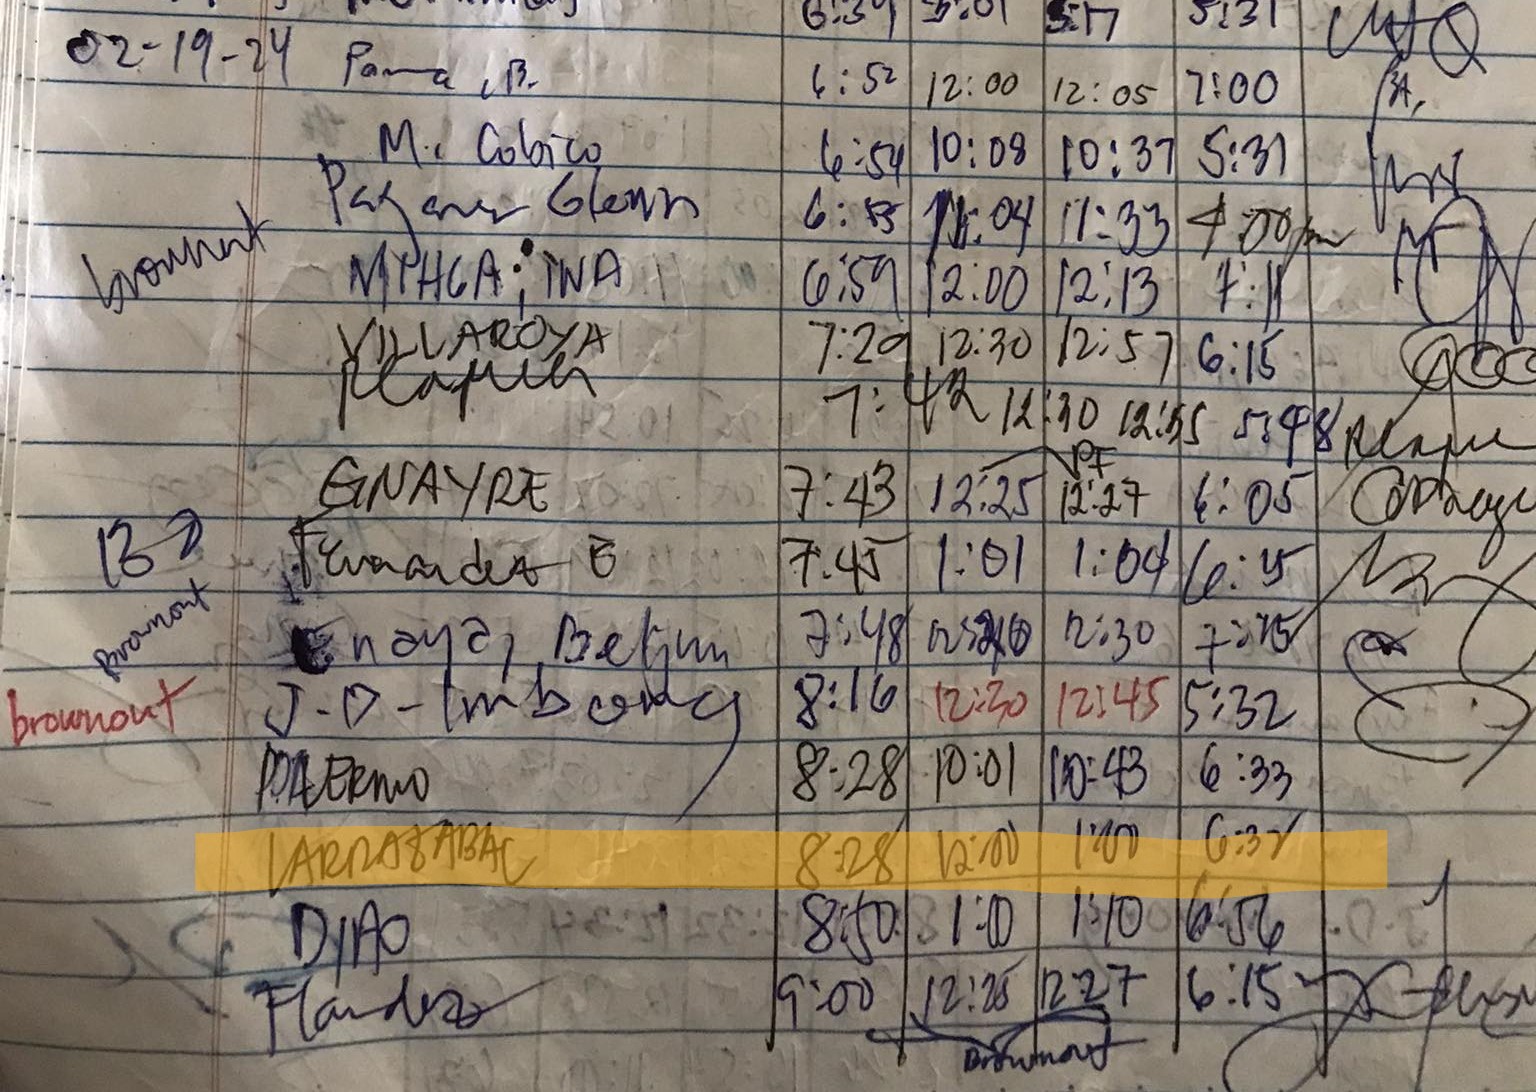 6:39 5:01 5:17 5:31
02-19-24 Pama, B. 6:52 12:00 12:05 7:00
M. Cobico 6:54 10:08 10:37 5:31
Glenn 6:55 11:04 11:33 4:00pm
brownout
MIHGA; INA 6:59 12:00 12:13 7:11
VILLAROYA 7:29 12:30 12:57 6:15
7:42 12:30 12:55 5:48
PF
GNAYRE 7:43 12:25 12:27 6:05
Fernandez E 7:45 1:01 1:04 6:15
brownout
Enaya, Beljun 7:48 12:30 7:15
brownout J.D-Imbong 8:16 12:30 12:45 5:32
PALERMO 8:28 10:01 10:43 6:33
LARRAZABAL 8:28 12:00 1:00 6:32
DIAO 8:50 1:10 1:10 6:56
Flandez 9:00 12:25 12:27 6:15
Brownout